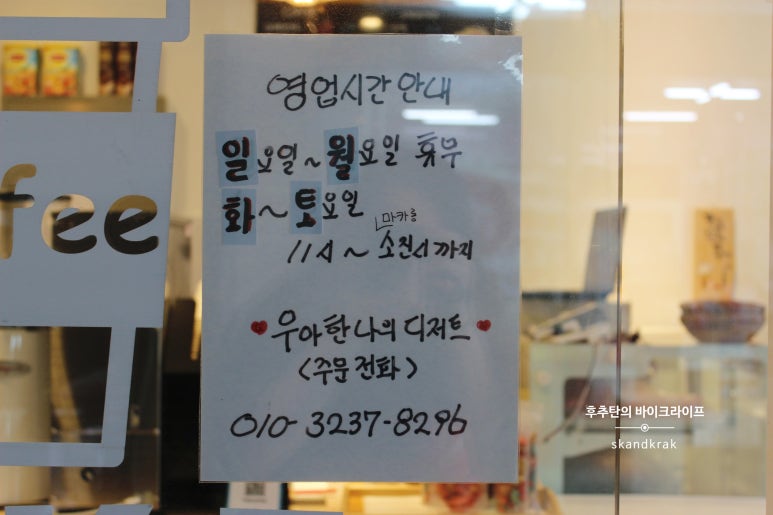 영업시간 안내
일요일 ~ 월요일 휴무
화 ~ 토요일
마카롱
11시 ~ 소진시까지
우아한 나의 디저트
(주문 전화)
010-3237-8296
fee
후추탄의 바이크라이프
skandkrak